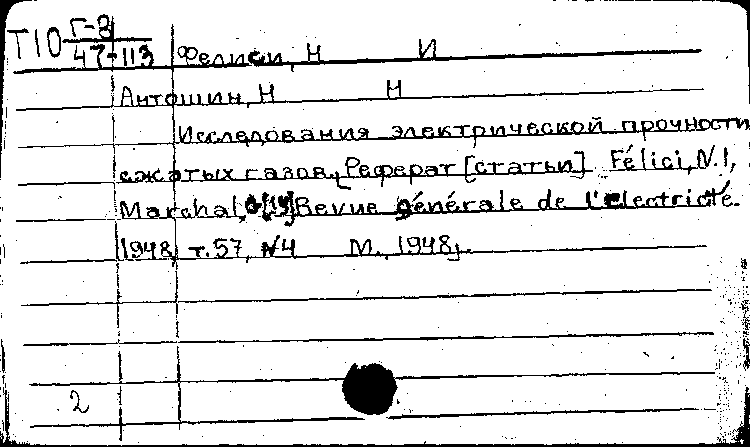 Т10 Г-8
47-113 Фелиси, Н И
Антошин, Н Н
Исследования электрической прочности
сжатых газов. Реферат [статьи] Félici, N.I,
Marchal, Revue générale de l'electricté.
1948, т.57, №4 М., 1948г.
2